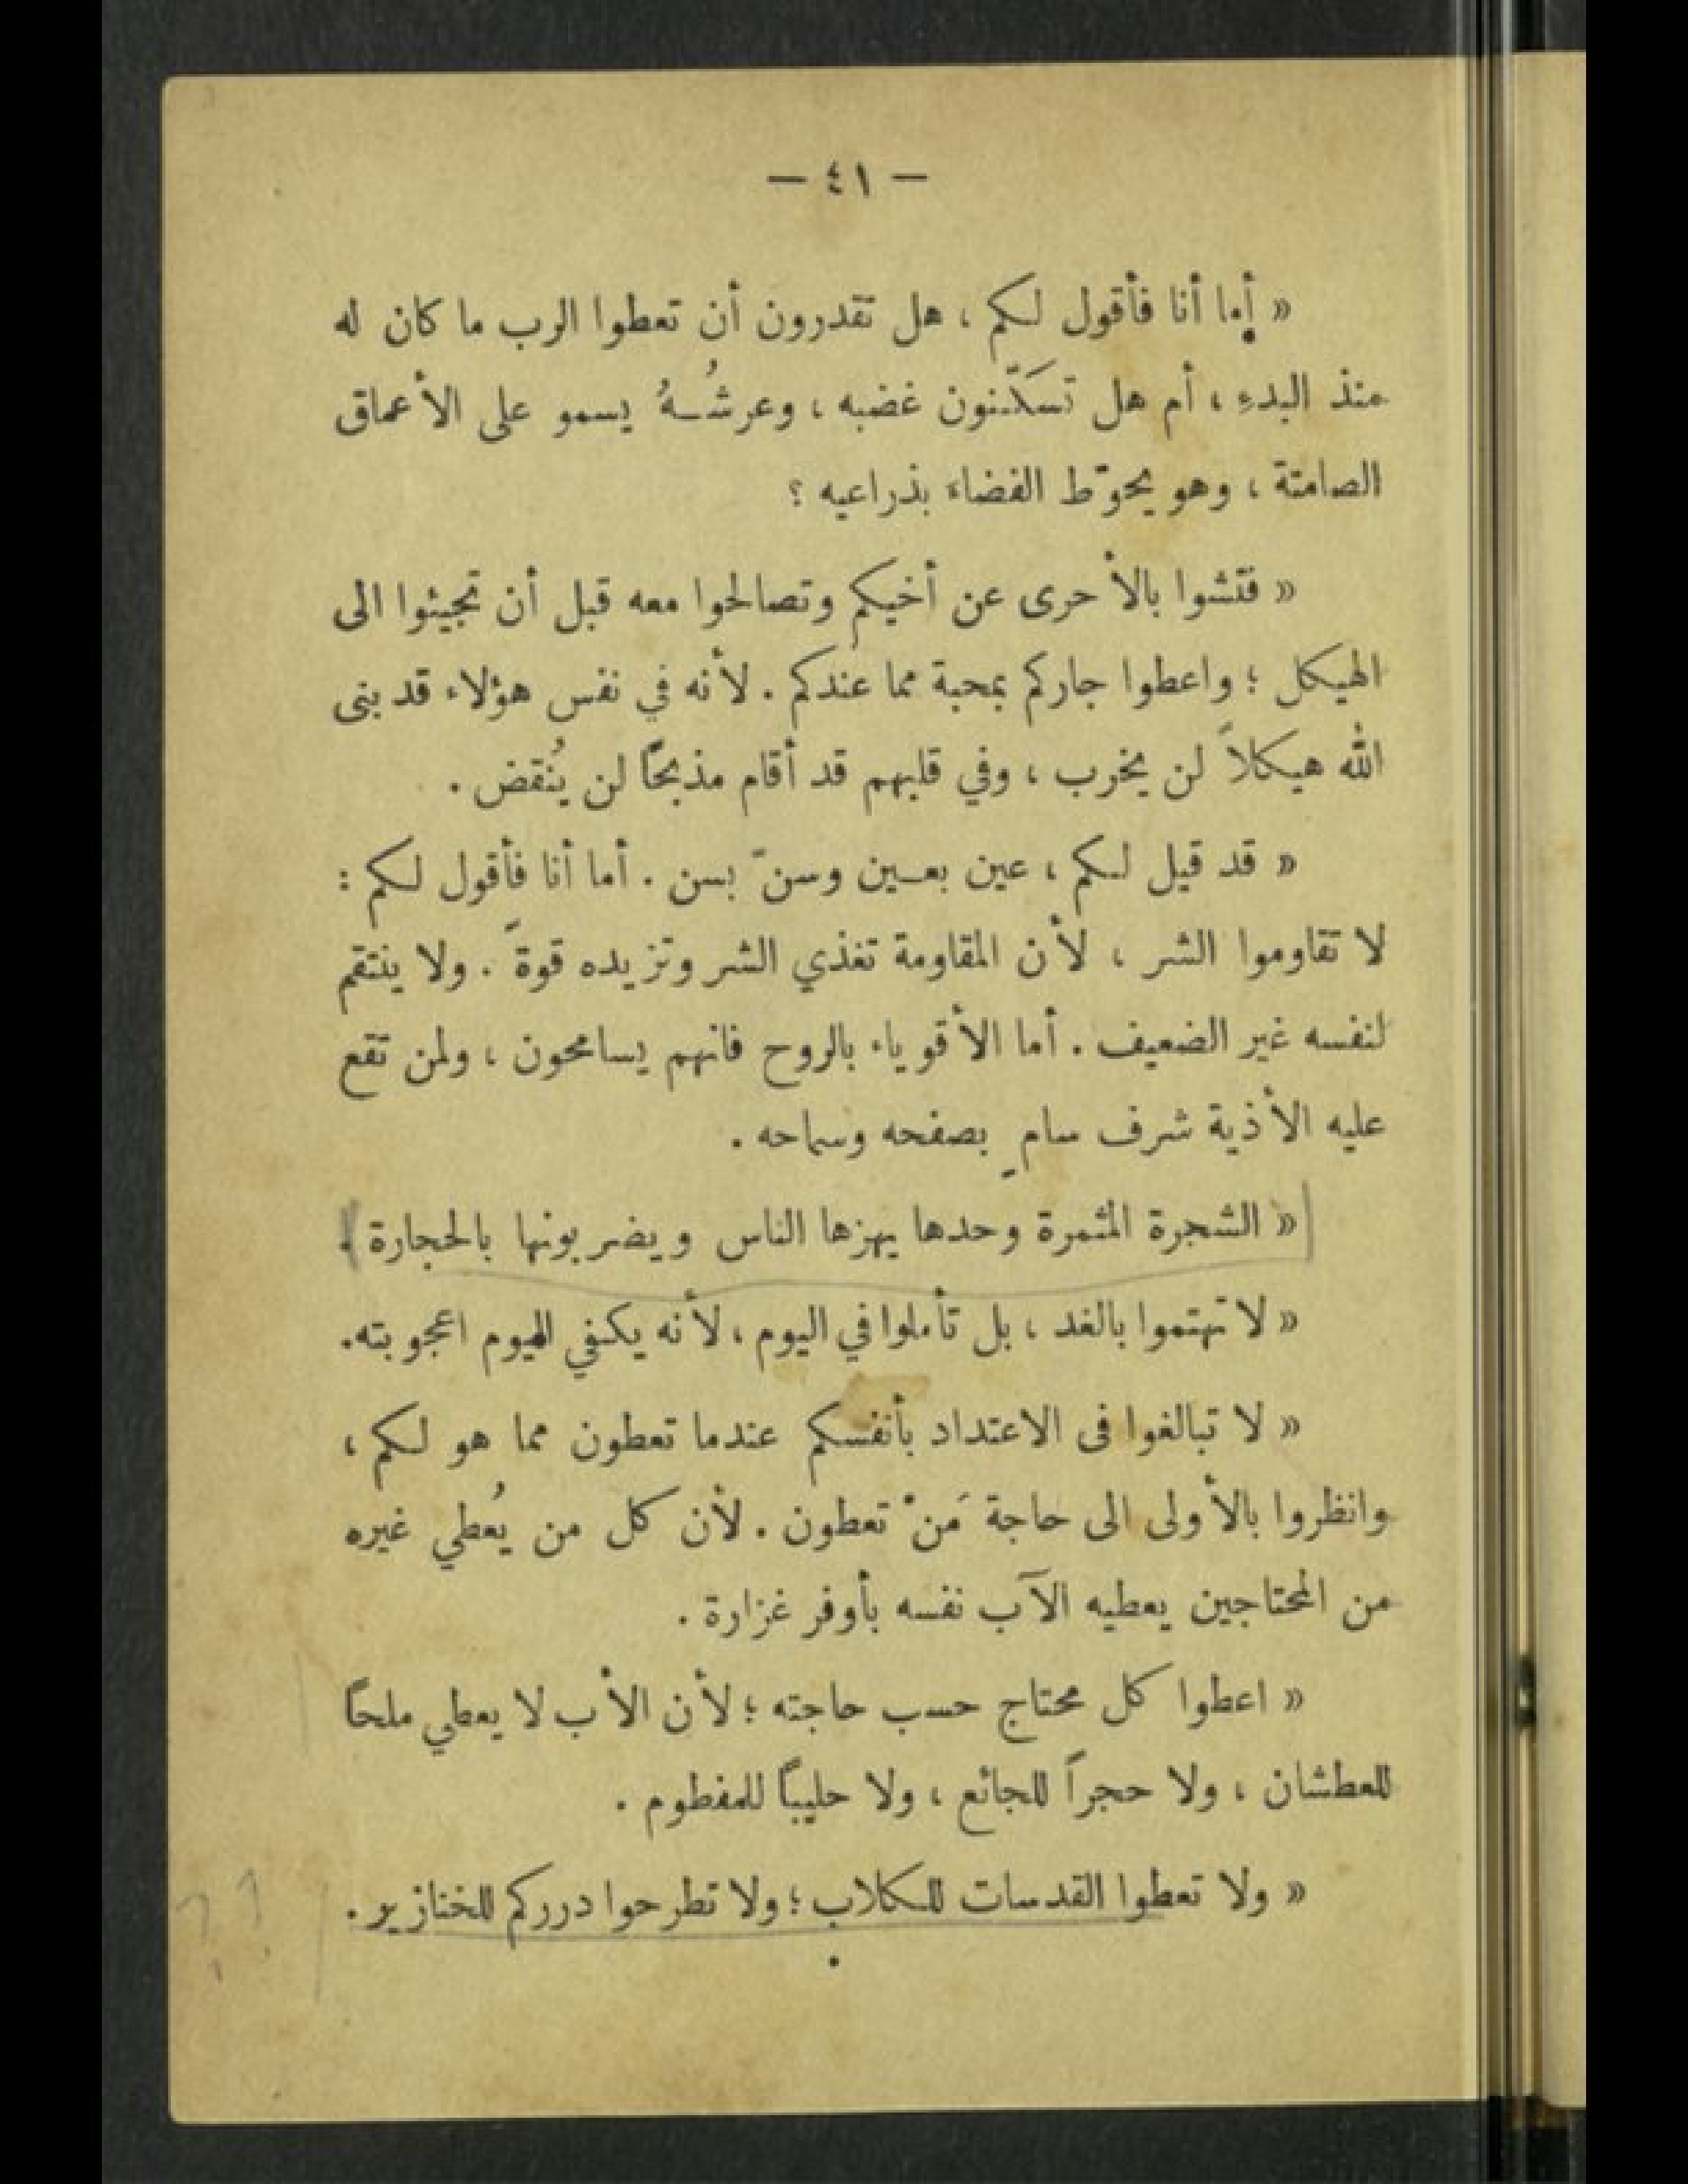 — ٤١ —
« أما أنا فأقول لكم ، هل تقدرون أن تعطوا الرب ما كان له
منذ البدءِ ، أم هل تسَكّنون غضبه ، وعرشُهُ يسمو على الأعماق
الصامتة ، وهو يحوّط الفضاء بذراعيه ؟
« فتشوا بالأحرى عن أخيكم وتصالحوا معه قبل أن تجيئوا الى
الهيكل ؛ واعطوا جاركم بمحبة مما عندكم . لأنه في نفس هؤلاء قد بنى
الله هيكلاً لن يخرب ، وفي قلبهم قد أقام مذبحًا لن يُنقض .
« قد قيل لكم ، عين بعين وسنّ بسن . أما أنا فأقول لكم :
لا تقاوموا الشر ، لأن المقاومة تغذي الشر وتزيده قوةً . ولا ينتقم
لنفسه غير الضعيف . أما الأقوياء بالروح فانهم يسامحون ، ولمن تقع
عليه الأذية شرف سامٍ بصفحه وسماحه .
« الشجرة المثمرة وحدها يهزها الناس ويضربونها بالحجارة .
« لا تهتموا بالغد ، بل تأملوا في اليوم ، لأنه يكفي اليوم اعجوبته .
« لا تبالغوا فى الاعتداد بأنفسكم عندما تعطون مما هو لكم ،
وانظروا بالأولى الى حاجة مَنْ تعطون . لأن كل من يُعطي غيره
من المحتاجين يعطيه الآب نفسه بأوفر غزارة .
« اعطوا كل محتاج حسب حاجته ؛ لأن الأب لا يعطي ملحًا
للعطشان ، ولا حجراً للجائع ، ولا حليبًا للمفطوم .
« ولا تعطوا القدسات للكلاب ؛ ولا تطرحوا درركم للخنازير .
؟ ؟